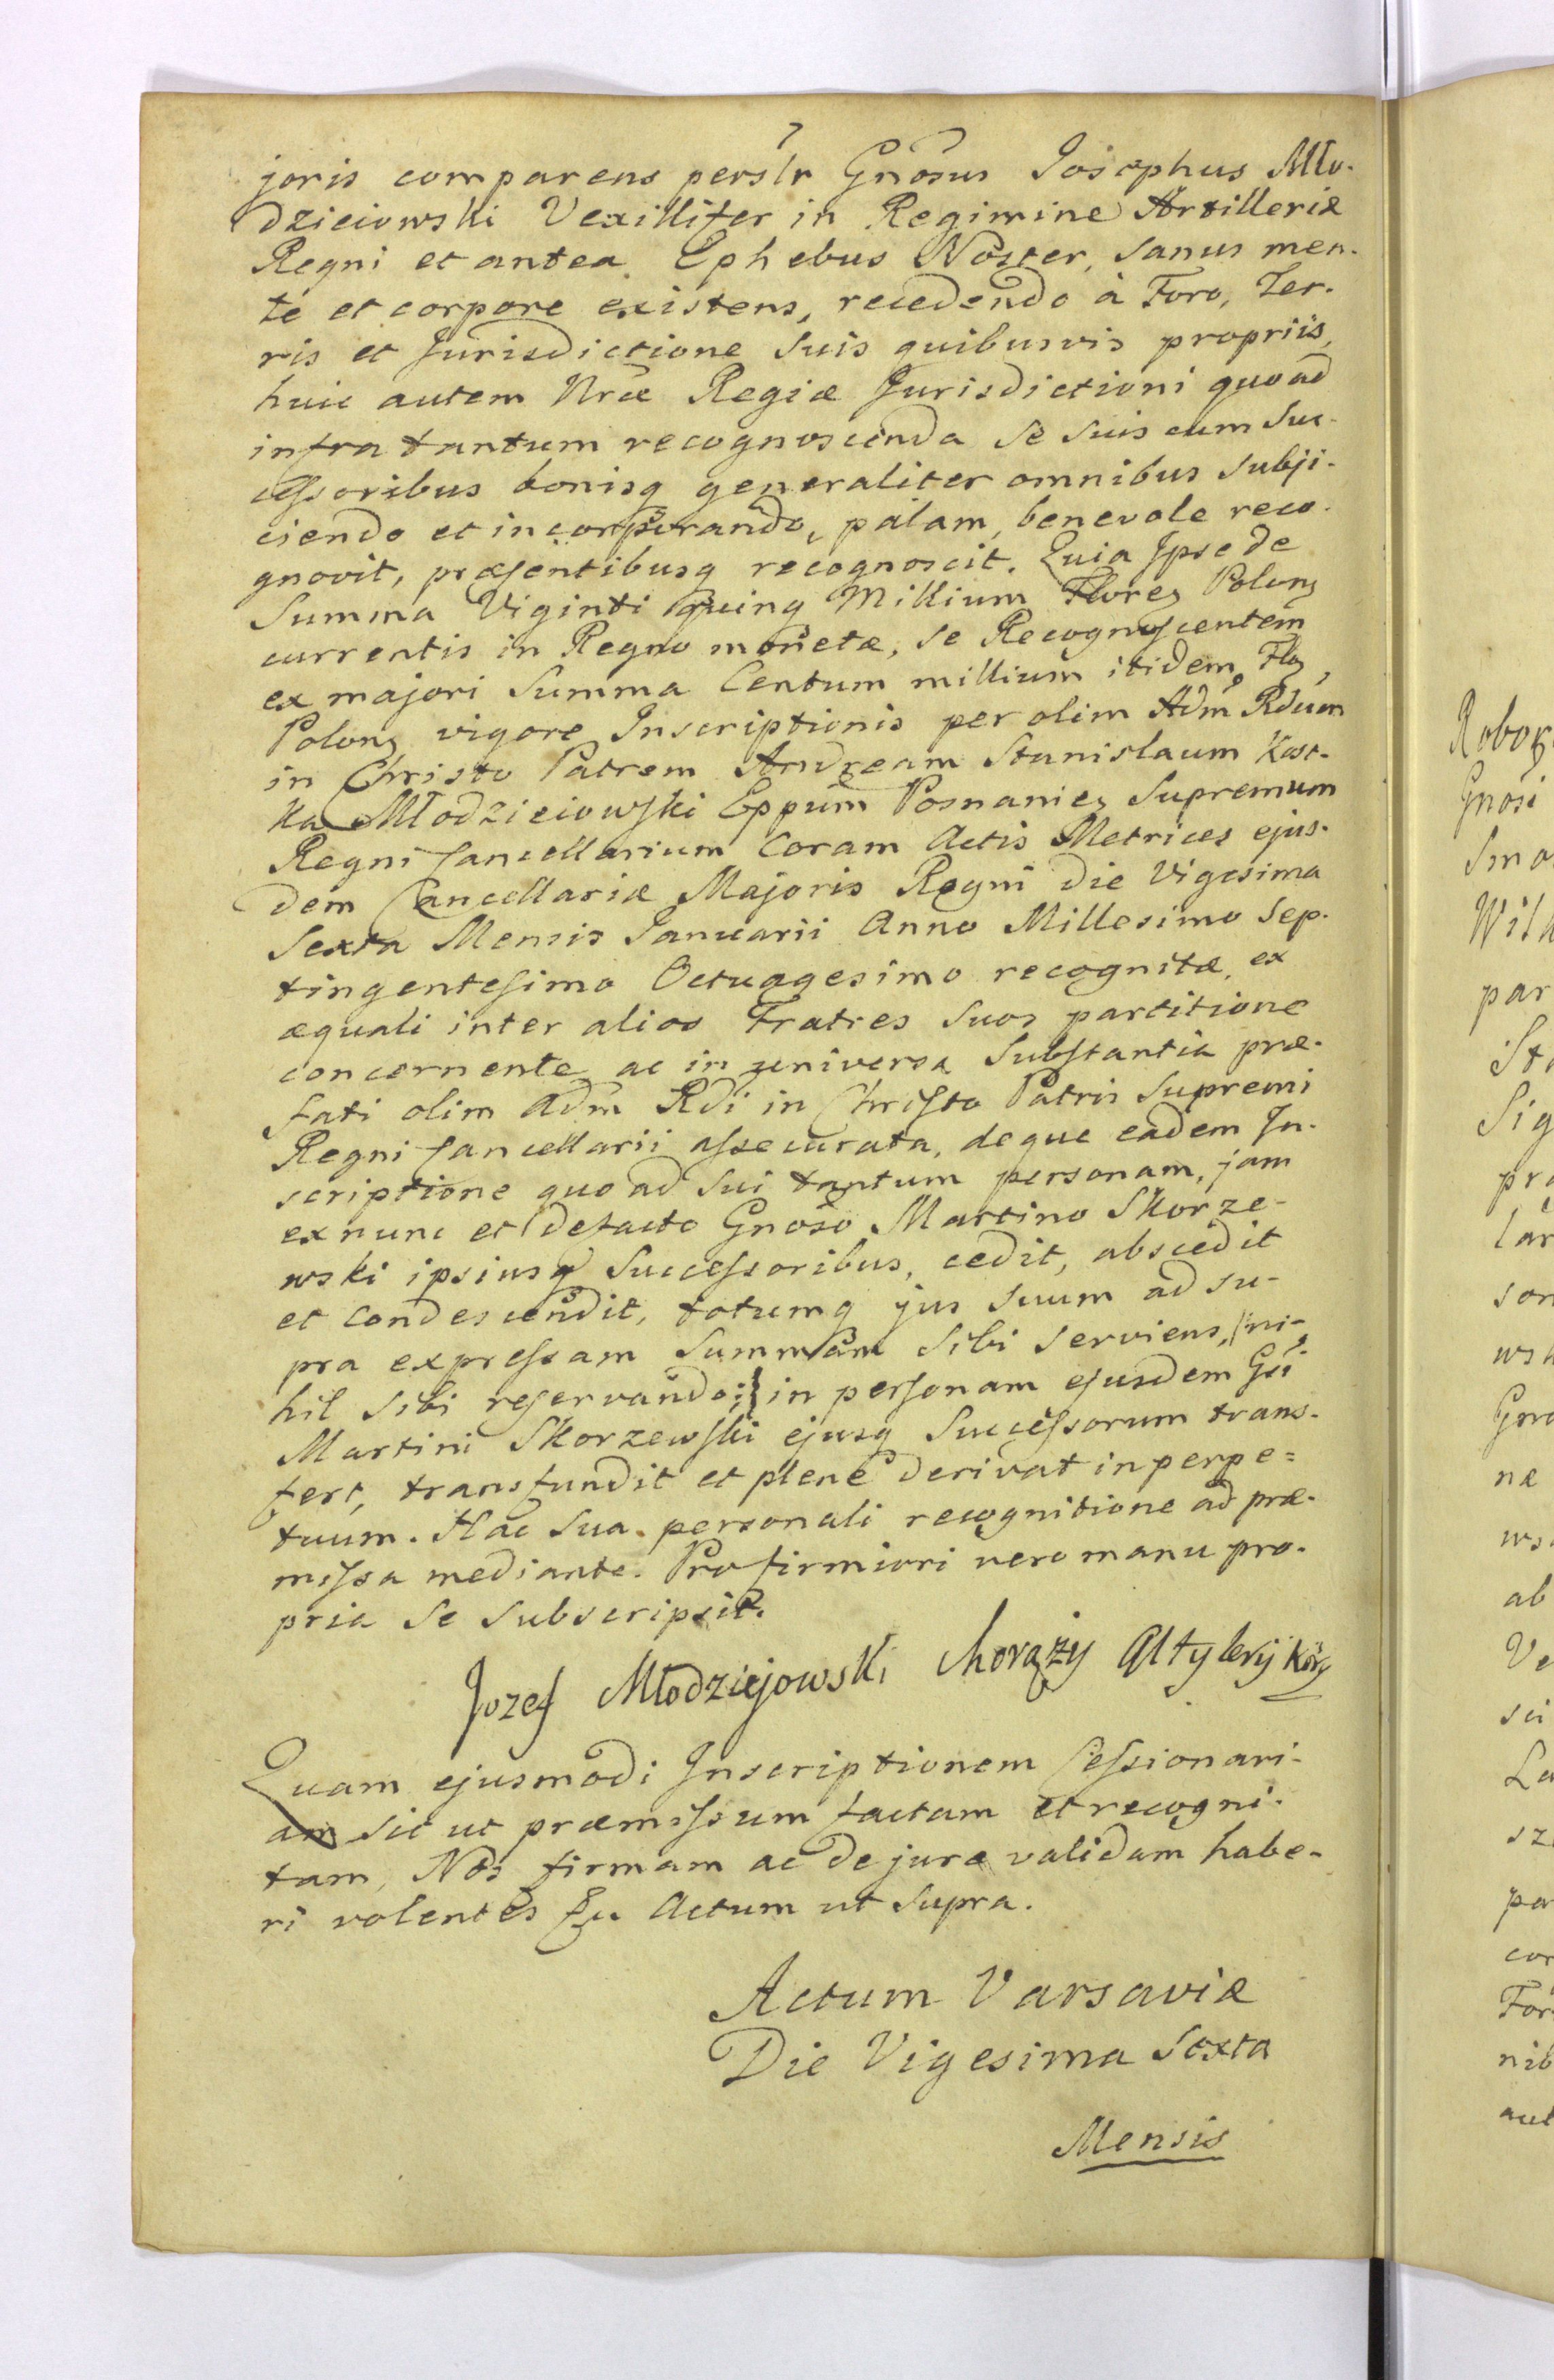 joris comparens persłr Gnosus Josephus Mło-
dzieiowski Vexillifer in Regimine Artilleriæ
Regni et antea Ephebus Noster, sanus men-
te et corpore existens, recedendo à Foro, Ter-
ris et Jurisdictione suis quibusvis propriis,
huic autem Nræ Regiæ Jurisdictioni quoad
infra tantum recognoscenda se suis cum suc-
cessoribus bonisq generaliter omnibus subji-
ciendo et incorporando, palam, benevole reco-
gnovit, præsentibusq recognoscit. Quia Ipse de
Summa Viginti quinq Millium Floreņ Poloņ
currentis in Regno monetæ, se Recognoscentem
ex majori Summa Centum millium itidem Floņ
Poloņ vigore Inscriptionis per olim Adm Rdum
in Christo Patrem Andream Stanislaum Kost-
ka Młodzieiowski Eppum Posnanieņ Supremum
Regni Cancellarium Coram Actis Metrices ejus-
dem Cancellariæ Majoris Regni Die Vigesima
Sexta Mensis Januarii Anno Millesimo Sep-
tingentesimo Octuagesimo recognitæ, ex
æquali inter alios Fratres suos partitione
concernente ac in universa Substantia præ-
fati olim Adm Rdi in Christo Patris Supremi
Regni Cancellarii assecurata, deque eadem In-
scriptione quoad sui tantum personam, jam
ex nunc et defacto Gnoso Martino Skorze-
wski ipsiusq Successoribus, cedit, abscedit
et condescendit, totumq jus suum ad su-
pra expressam Summam sibi serviens, ni-
hil sibi reservando; in personam ejusdem Gsi
Martini Skorzewski ejusq Successorum trans-
fert, transfundit et plene derivat in perpe=
tuum. Hac sua personali recognitione ad præ-
missa mediante. Pro firmiori vero manu pro-
pria se subscripsit.
Jozef Młodziejowski Chorąży Altyleryj Kor
Quam ejusmodi Inscriptionem Cessionari-
am sic ut præmissum factam et recogni-
tam, Nos firmam ac de jure validam habe-
ri volentes Actum ut Supra.
Actum Varsaviæ
Die Vigesima Sexta
Mensis
Gnosi
Smo
par
Sig
ab
Ve
La
par
cor
For
nib